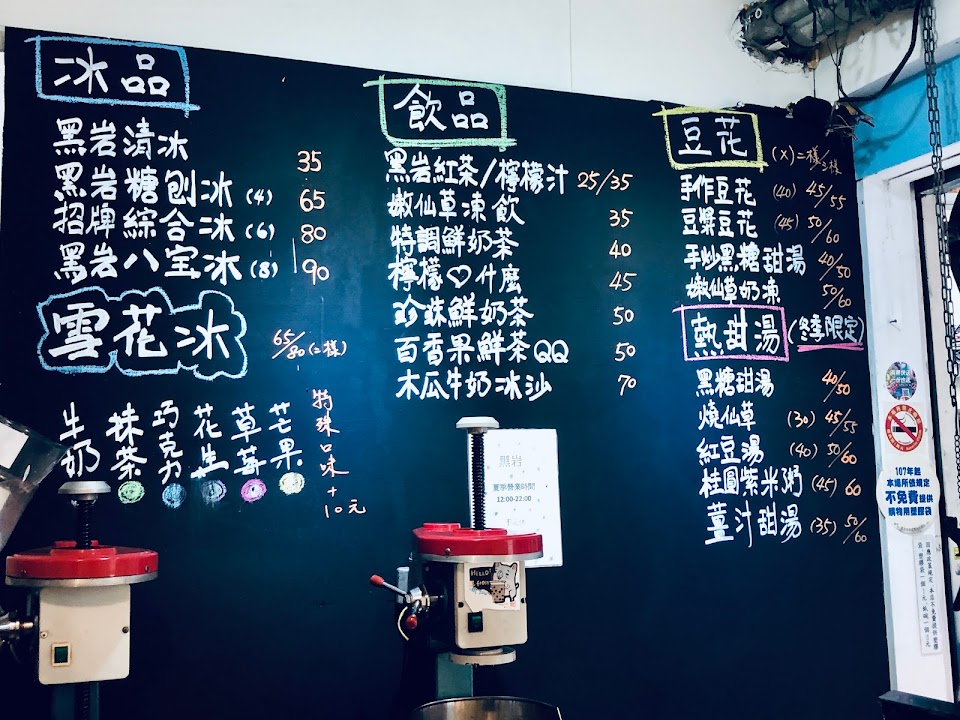 冰品
黑岩清冰 35
黑岩糖刨冰 (4) 65
招牌綜合冰 (6) 80
黑岩八宝冰 (8) 90
雪花冰 65/80 (二樣)
牛奶
抹茶
巧克力
花生
草莓
芒果
特珠口味+10元
飲品
黑岩紅茶/檸檬汁 25/35
嫩仙草凍飲 35
特調鮮奶茶 40
檸檬♡什麼 45
珍珠鮮奶茶 50
百香果鮮茶QQ 50
木瓜牛奶冰沙 70
豆花 (X)=二樣/三樣
手作豆花 (40) 45/55
豆漿豆花 (45) 50/60
手炒黑糖甜湯 40/50
嫩仙草奶凍 50/60
熱甜湯 (冬季限定)
黑糖甜湯 40/50
燒仙草 (30) 45/55
紅豆湯 (40) 50/60
桂圓紫米粥 (45) 60
薑汁甜湯 (35) 50/60
黑岩
夏季營業時間
12:00-22:00
HELLO!
107年起
本場所依規定
不免費提供
購物用塑膠袋